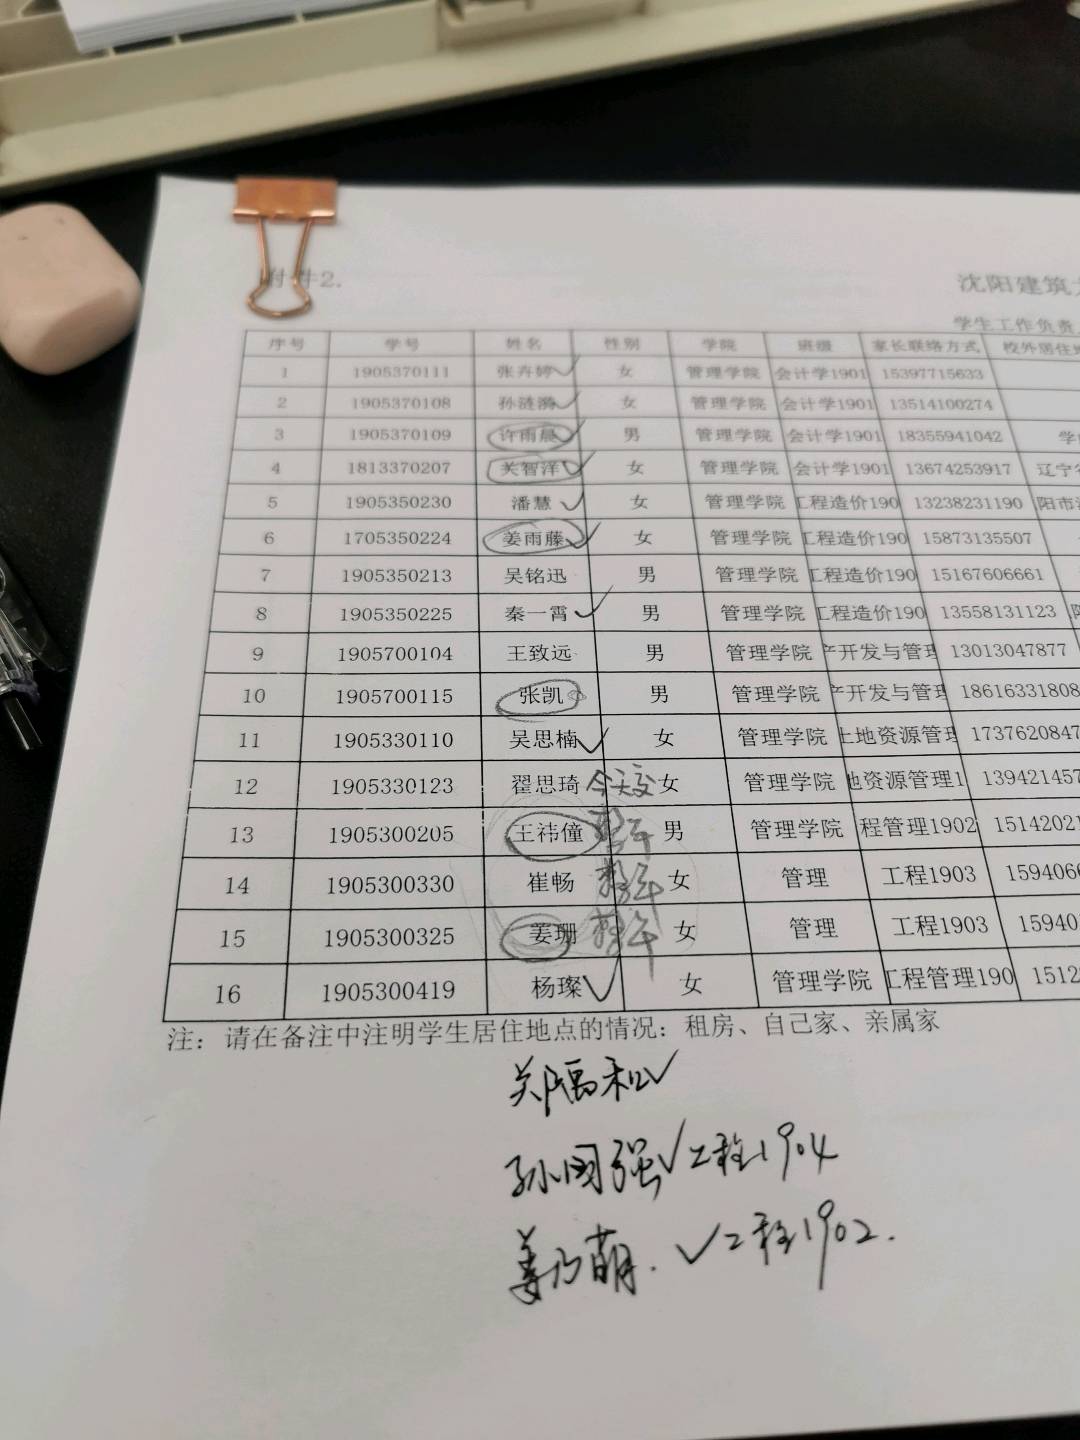 附件2.
沈阳建筑
学生工作负责
序号 学号 姓名 性别 学院 班级 家长联络方式 校外居住
1 1905370111 张卉婷✓ 女 管理学院 会计学1901 15397715633
2 1905370108 孙涟漪✓ 女 管理学院 会计学1901 13514100274
3 1905370109 许雨晨✓ 男 管理学院 会计学1901 18355941042 学
4 1813370207 关智洋✓ 女 管理学院 会计学1901 13674253917 辽宁
5 1905350230 潘慧✓ 女 管理学院 工程造价190 13238231190 阳市
6 1705350224 姜雨藤✓ 女 管理学院 工程造价190 15873135507
7 1905350213 吴铭迅 男 管理学院 工程造价190 15167606661
8 1905350225 秦一霄✓ 男 管理学院 工程造价190 13558131123
9 1905700104 王致远 男 管理学院 产开发与管理 13013047877
10 1905700115 张凯 男 管理学院 产开发与管理 18616331808
11 1905330110 吴思楠✓ 女 管理学院 土地资源管理 1737620847
12 1905330123 翟思琦 今天交 女 管理学院 地资源管理1 139421457
13 1905300205 王祎僮 男 管理学院 程管理1902 15142021
14 1905300330 崔畅 女 管理 工程1903 1594066
15 1905300325 姜珊 女 管理 工程1903 159401
16 1905300419 杨璨✓ 女 管理学院 工程管理190 1512
注：请在备注中注明学生居住地点的情况：租房、自己家、亲属家
✓
孙国强✓工程1904
姜乃萌.✓工程1902.